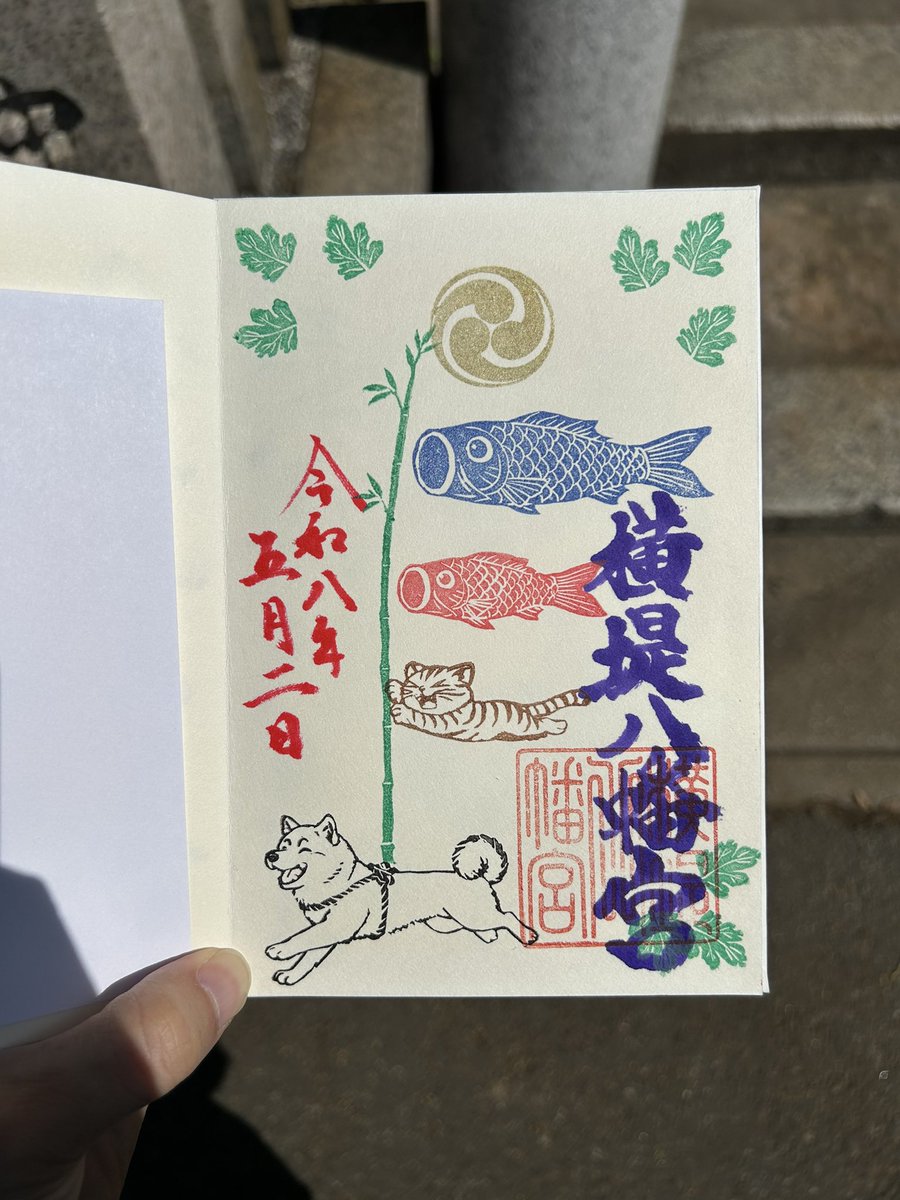 横堤八幡宮
幡宮
令和八年
五月二日